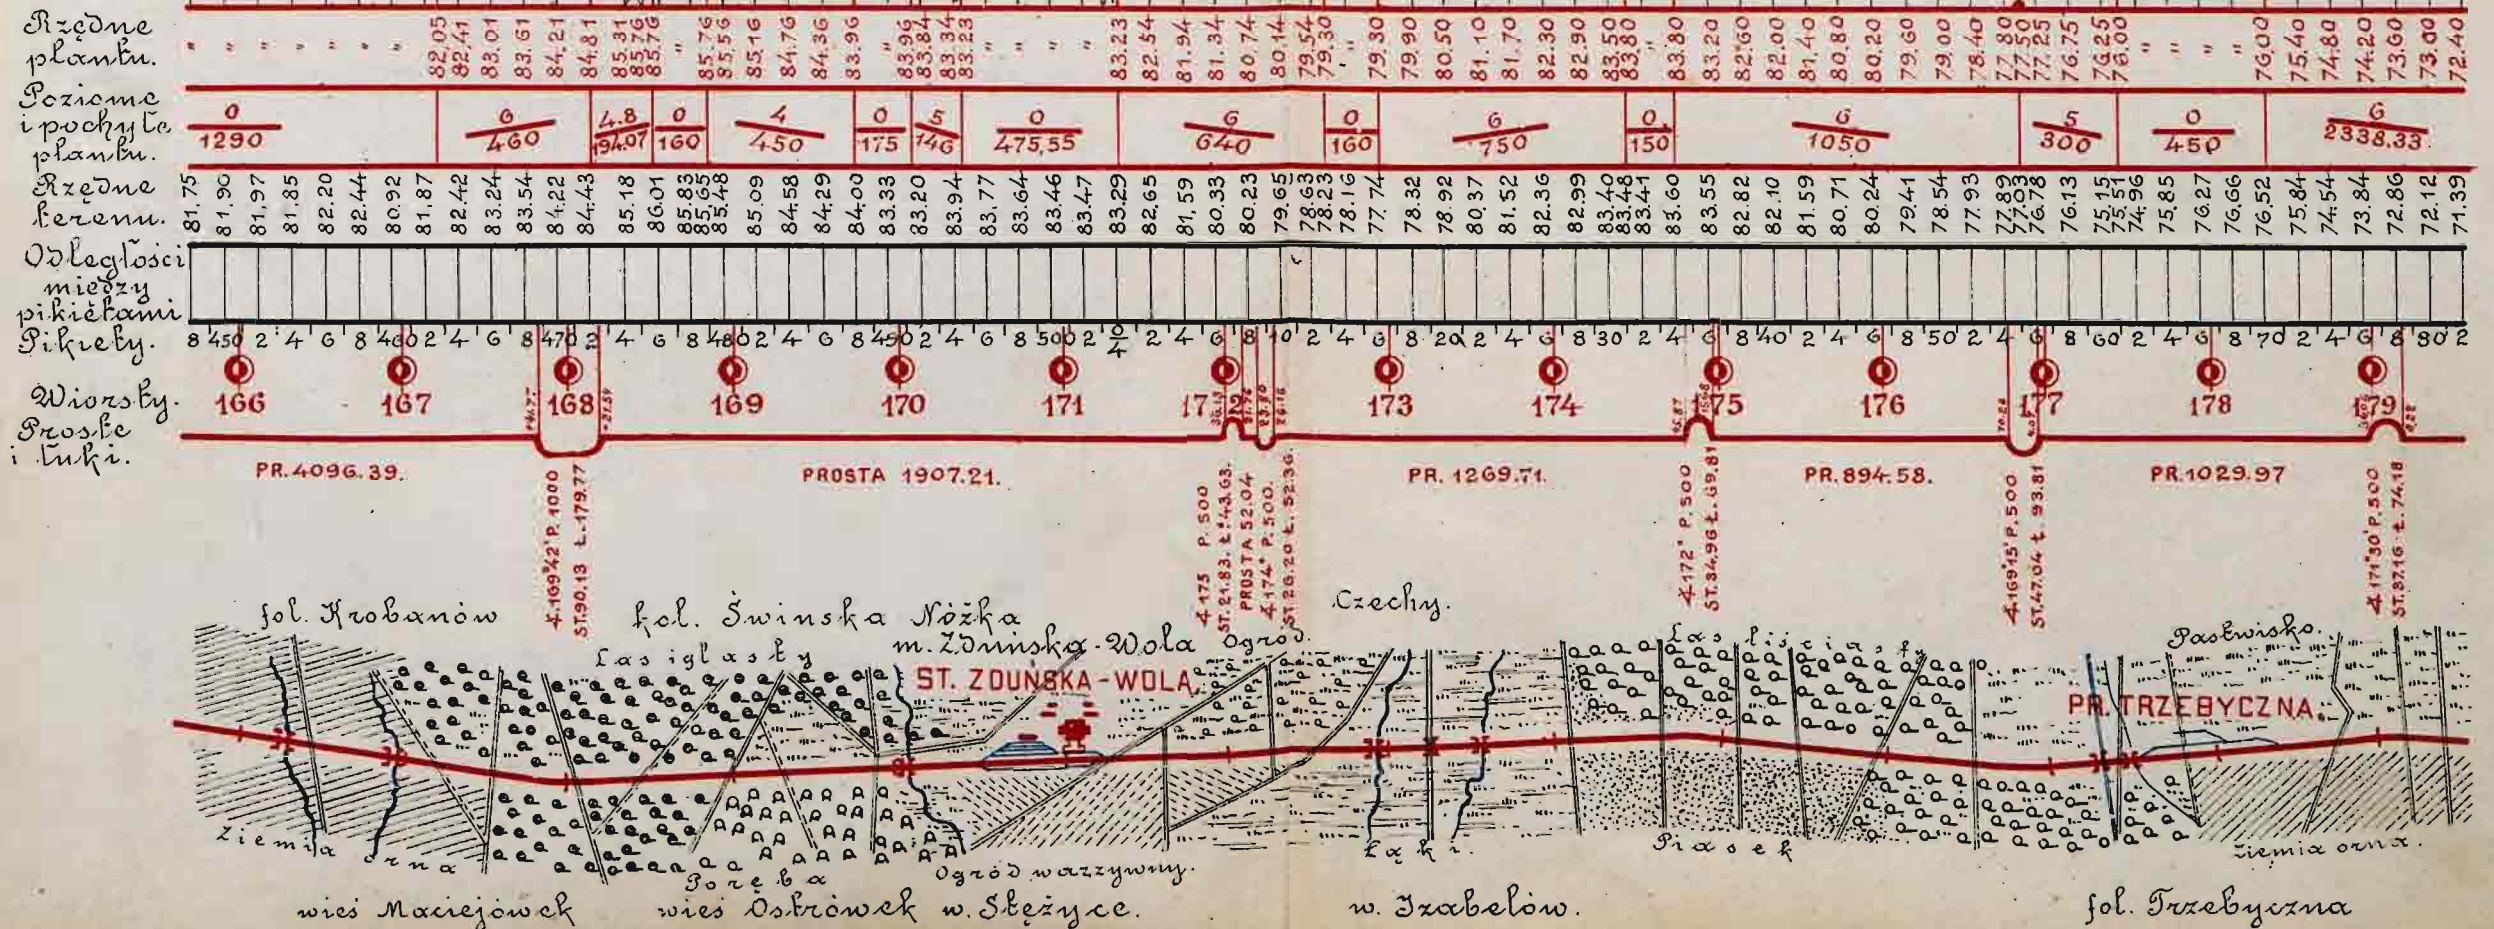 Rzędne
plantu.
" " " " " " " 82,05 82.41 83.01 83.61 84.21 84.81 85.31 85.76 85.76 " 85.76 85.56 85.16 84.76 84.36 83.96 " 83.96 83.84 83.34 83.23 " " " " 83.23 82.54 81.94 81.34 80.74 80.14 79.54 79.30 " 79.30 79.90 80.50 81.10 81.70 82.30 82.90 83.50 83.80 " 83.80 83.20 82.60 82.00 81.40 80.80 80.20 79.60 79.00 78.40 77.80 77.50 77.25 76.75 76.25 76.00 " " " " 76.00 75.40 74.80 74.20 73.60 73.00 72.40
Poziome
i pochyłe
plantu.
0 6 4.8 0 4 0 5 0 6 0 6 0 6 5 0 6
1290 460 194.07 160 450 175 146 475,55 640 160 750 150 1050 300 450 2338.33
Rzędne
terenu.
81.75 81.90 81,97 81.85 82.20 82.44 80.92 81.87 82.42 83.24 83.54 84.22 84.43 85.18 86.01 85.83 85.65 85.48 85.09 84.58 84.29 84.00 83.33 83.20 83.94 83.77 83.64 83.46 83.47 83.29 82.65 81,59 80.33 80.23 79.65 78.63 78.23 78.16 77.74 78.32 78.92 80.37 81.52 82.36 82.99 83.40 83.48 83.41 83.60 83.55 82.82 82.10 81.59 80.71 80.24 79.41 78.54 77.93 77.89 77.03 76.78 76.13 75.15 75.51 74.96 75.85 76.27 76.66 76.52 75.84 74.54 73.84 72.86 72.12 71.39
Odległości
między
pikietami
Pikiety.
8 450 2 4 6 8 460 2 4 6 8 470 2 4 6 8 480 2 4 6 8 490 2 4 6 8 500 2 0/4 2 4 6 8 10 2 4 6 8 20 2 4 6 8 30 2 4 6 8 40 2 4 6 8 50 2 4 6 8 60 2 4 6 8 70 2 4 6 8 80 2
Wiorsty.
166 167 168 169 170 171 172 173 174 175 176 177 178 179
Proste
i łuki.
PR.4096.39.
∡.169°42' P.1000
ST.90,13 Ł.179.77
PROSTA 1907.21.
∡ 175 P.500
ST. 21.83. Ł.43.63.
PROSTA 52.04
∡ 174° P.500.
ST.26.20 Ł. 52.36.
PR. 1269.71.
∡ 172° P.500
ST.34.96 Ł.69.81
PR.894.58.
∡ 169°15' P.500
ST.47.04 Ł 93.81
PR.1029.97
∡ 171°30' P.500
ST.37.16 Ł.74.18
fol. Krobanów
kol. Świnska Nóżka
Czechy.
m. Zduńska-Wola
Ogród.
Las iglasty
Las liściasty
Pastwisko.
ST. ZDUŃSKA-WOLA
PR. TRZEBYCZNA
Ziemia orna
Poręba
Ogród warzywny.
Łąki.
Piasek
ziemia orna.
wieś Maciejówek
wieś Ostrówek
w. Stężyce.
w. Izabelów.
fol. Trzebyczna